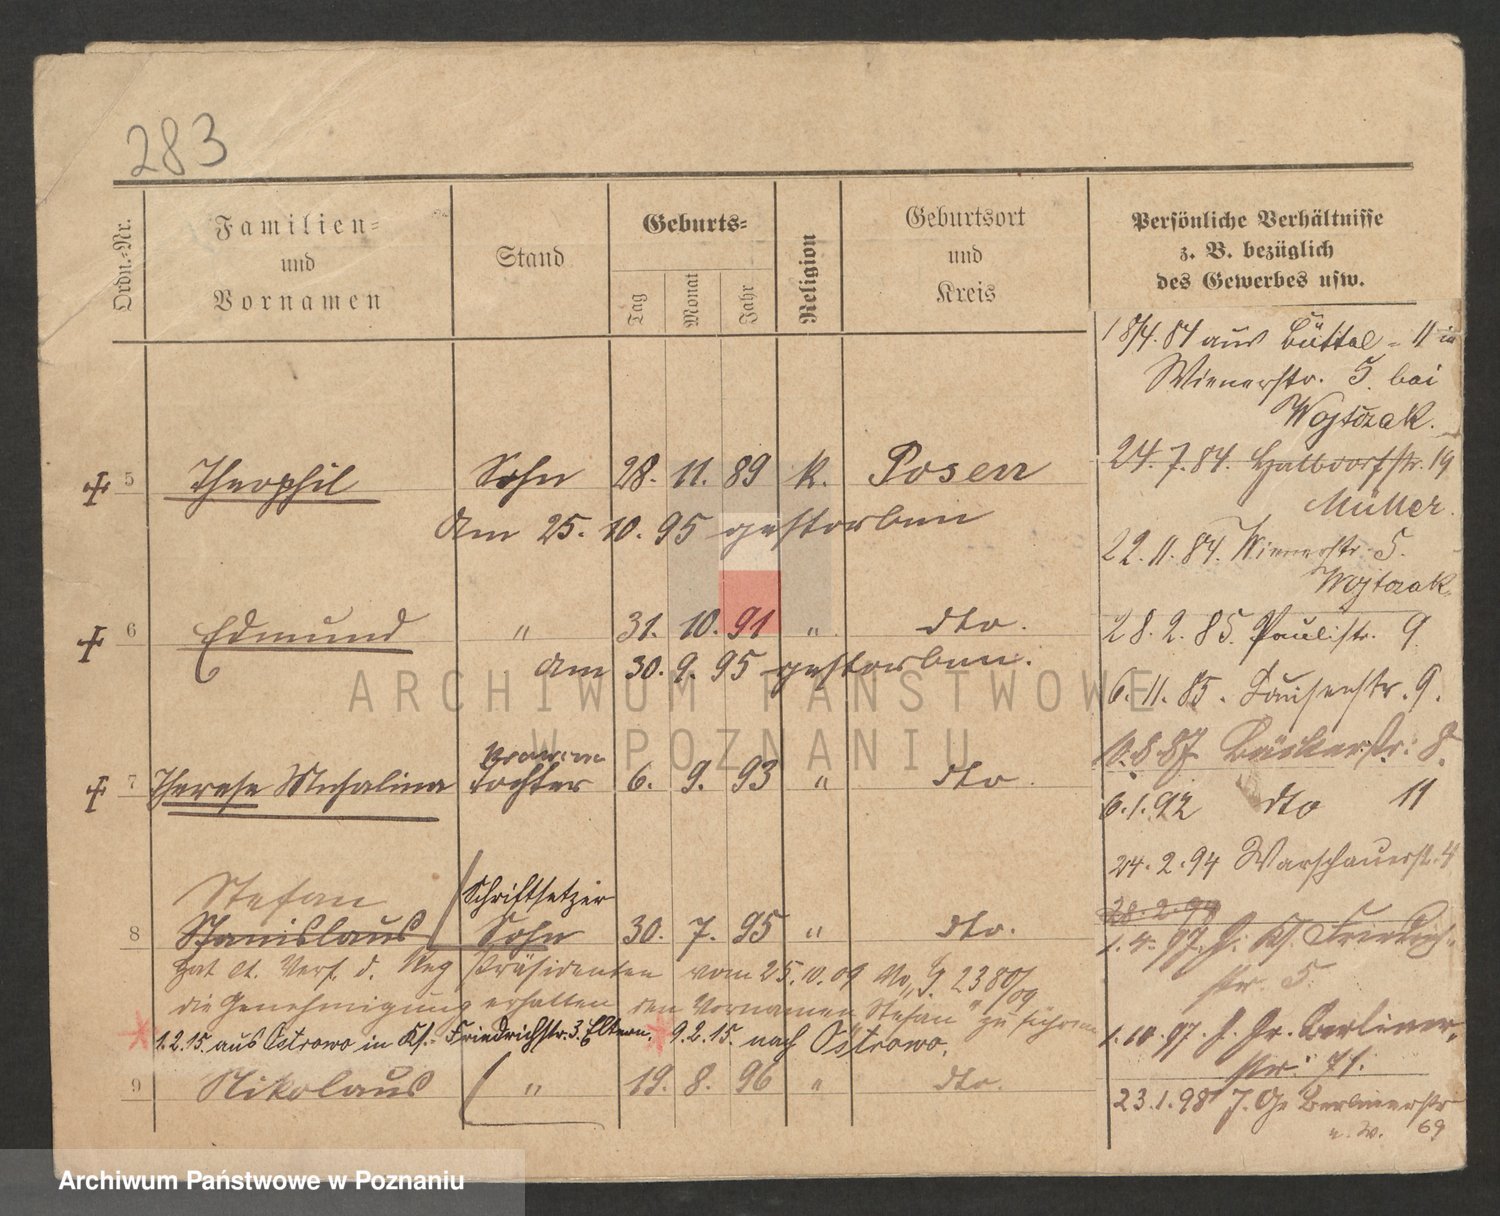 283
Ordn.-Nr.
Familien-
und
Vornamen
Stand
Geburts-
Tag
Monat
Jahr
Religion
Geburtsort
und
Kreis
Persönliche Verhältnisse
z. B. bezüglich
des Gewerbes usw.
5 Theophil Sohn 28. 11. 89 k. Posen
am 25. 10. 95 gestorben
6 Edmund " 31. 10. 91 " dto.
am 30. 9. 95 gestorben.
7 Therese Michalina Tochter 6. 9. 93 " dto.
Stefan Schriftsetzer
8 Stanislaus Sohn 30. 7. 95 " dto.
Hat lt. Verf. d. Reg Präsidenten vom 25.10.09 No. J. 2380/09
die Genehmigung erhalten den Vornamen "Stefan" zu führen
1.2.15. aus Ostrowo in Kf. Friedrichstr. 3. Eltern. 9.2.15. nach Ostrowo.
9 Nikolaus " 19. 8. 96 " dto.
18/4. 84 aus - 11 in
Wienerstr. 5. bei
Wojtczak.
24. 7. 84. Halbdorfstr. 19
Müller.
22. 11. 84. Wienerstr. 5.
Wojtczak.
28. 2. 85. Paulistr. 9.
6. 11. 85. Louisenstr. 9.
Bäckerstr. 8.
6. 1. 92 dto 11
24. 2. 94 Warschauerstr. 4
28. 2. 94
1. 4. 97. J. Kf. Friedrich-
str. 5.
1. 10. 97. J. Gr. Berliner-
str. 71.
23. 1. 98 J. Gr Berlinerstr
u. W. 69
ARCHIWUM PAŃSTWOWE
W POZNANIU
Archiwum Państwowe w Poznaniu